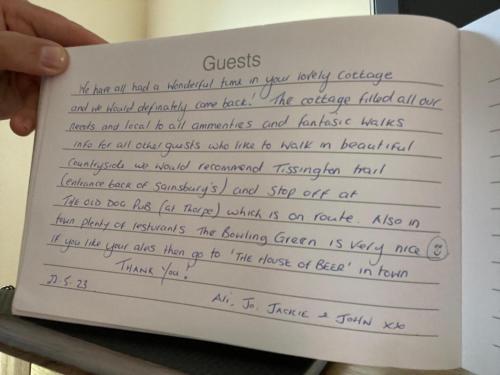 Guests
We have all had a wonderful time in your lovely cottage
and we would definately come back! The cottage filled all our
needs and local to all ammenties and fantasic walks
info for all other guests who like to walk in beautiful
countryside we would recommend Tissington trail
(entrance back of Sainsbury's) and stop off at
THE OLD DOG PUB (at Thorpe) which is on route. Also in
town plenty of resturants The Bowling Green is very nice
if you like your ales then go to 'THE HOUSE OF BEER' in town
THANK YOU!
22.5.23
Ali, Jo, JACKIE & JOHN xxo